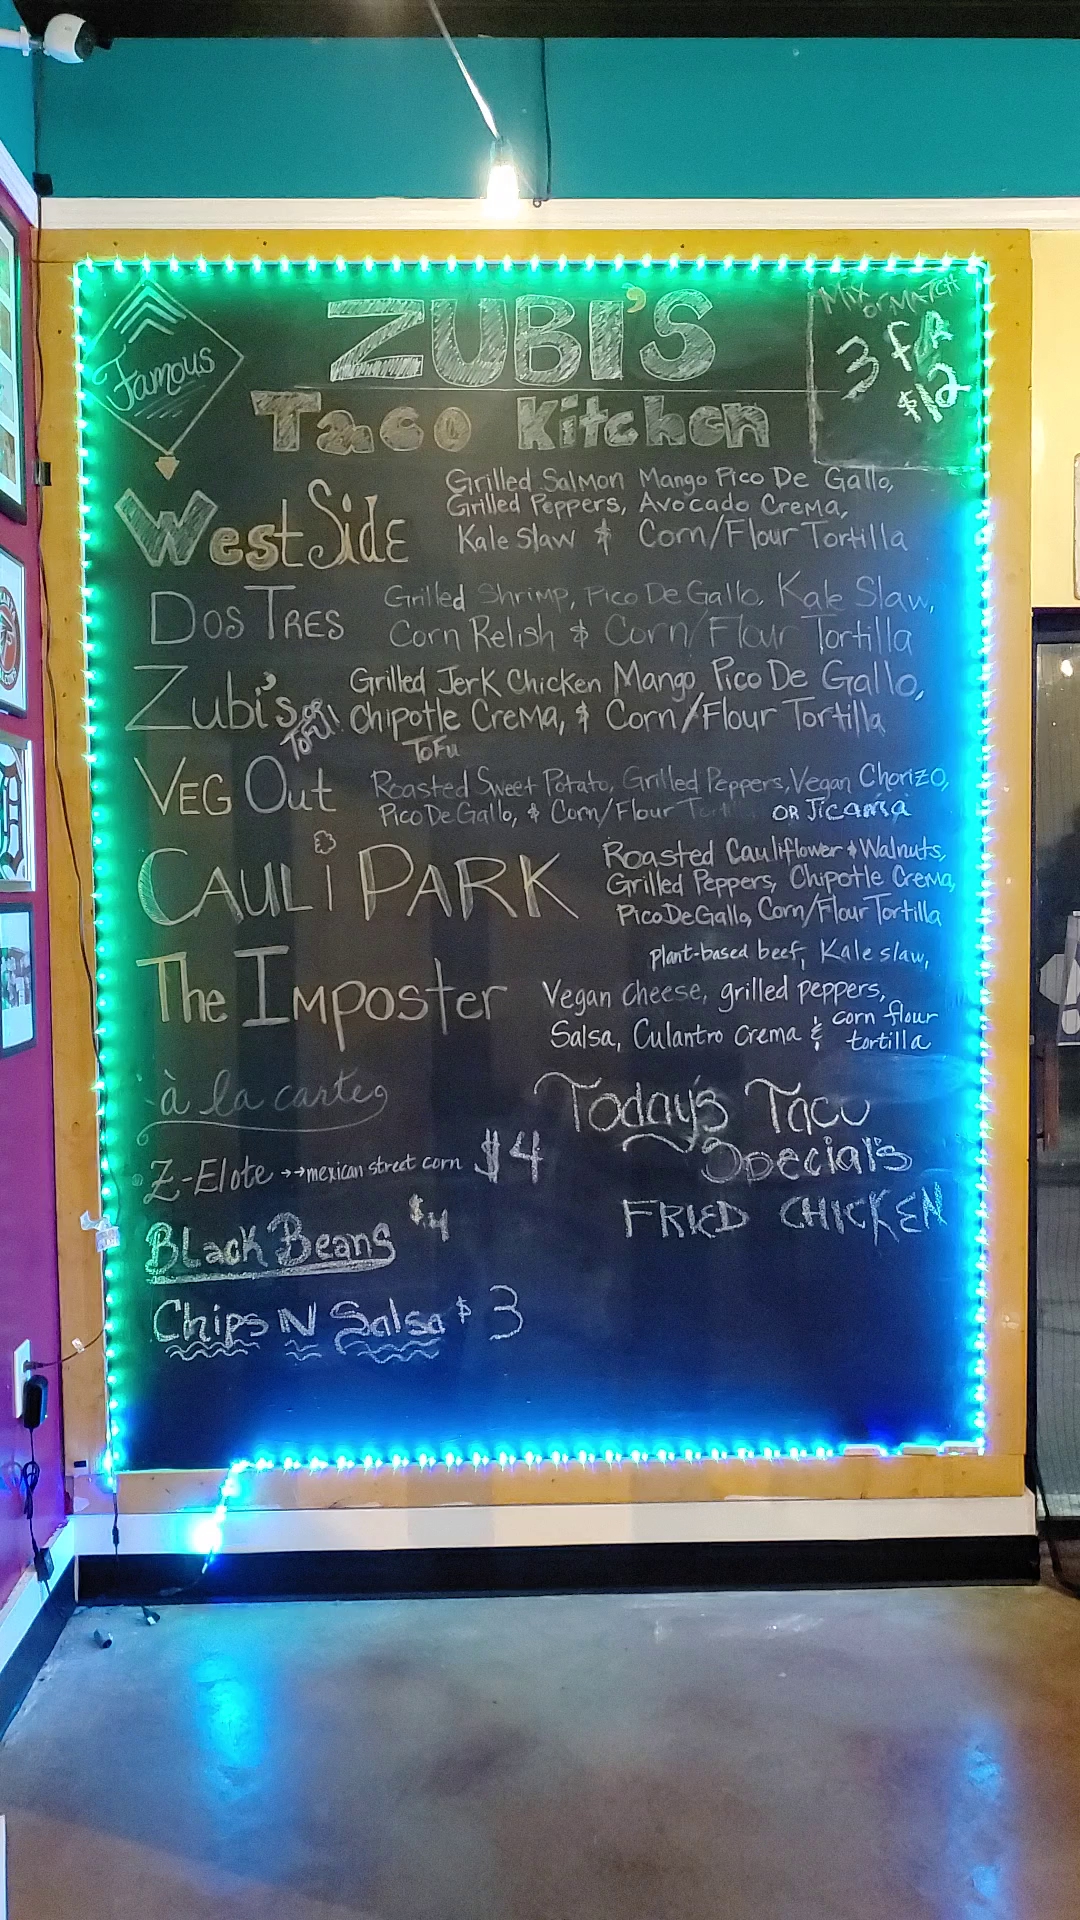 Famous
ZUBI'S
Taco Kitchen
Mix
or MATCH
3 for
$12
West Side
Grilled Salmon Mango Pico De Gallo,
Grilled Peppers, Avocado Crema,
Kale Slaw & Corn/Flour Tortilla
Dos Tres
Grilled Shrimp, Pico De Gallo, Kale Slaw,
Corn Relish & Corn/Flour Tortilla
Zubi's or Tofu!
Grilled Jerk Chicken Mango Pico De Gallo,
Chipotle Crema, & Corn/Flour Tortilla
Tofu
Veg Out
Roasted Sweet Potato, Grilled Peppers, Vegan Chorizo,
Pico De Gallo, & Corn/Flour OR Jicama
CAULi PARK
Roasted Cauliflower & Walnuts,
Grilled Peppers, Chipotle Crema,
Pico De Gallo, Corn/Flour Tortilla
The Imposter
plant-based beef, Kale slaw,
Vegan cheese, grilled peppers,
Salsa, Culantro Crema & corn flour
tortilla
à la carte
Z-Elote →→mexican street corn $4
Black Beans $4
Chips N Salsa $3
Today's Taco
Special's
FRIED CHICKEN